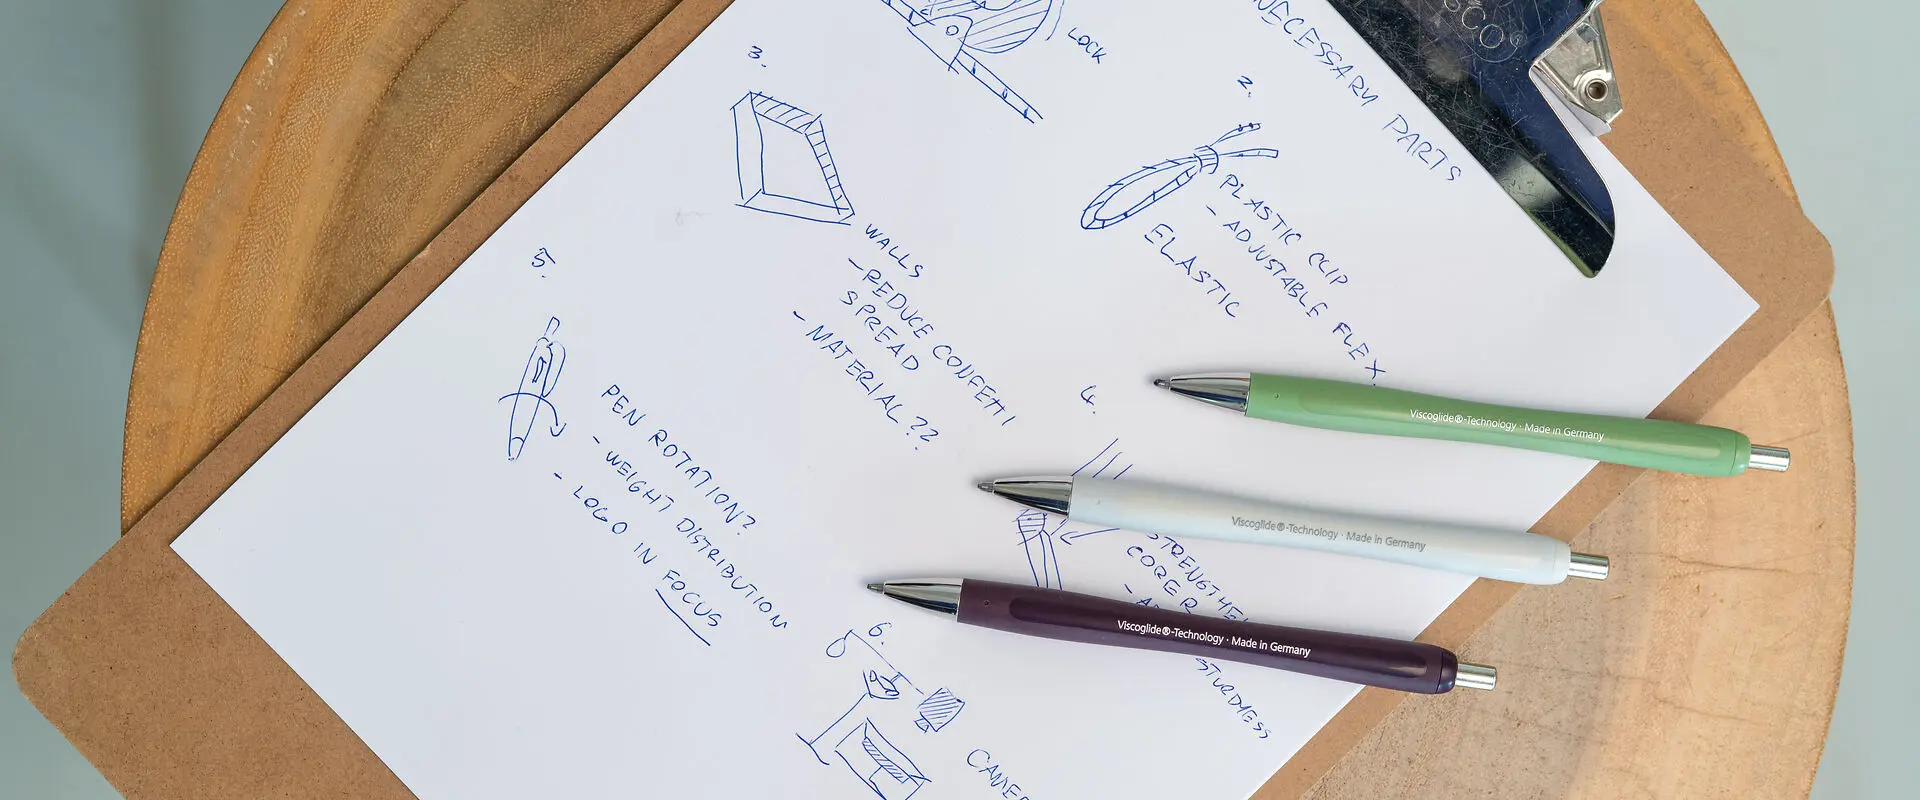 NECESSARY PARTS
LOCK
2.
PLASTIC CLIP
- ADJUSTABLE FLEX.
ELASTIC
3.
WALLS
- REDUCE CONFETTI
SPREAD
- MATERIAL ??
4.
CORER
STURDNESS
5.
PEN ROTATION?
- WEIGHT DISTRIBUTION
- LOGO IN FOCUS
6.
Viscoglide®-Technology · Made in Germany
Viscoglide®-Technology · Made in Germany
Viscoglide®-Technology · Made in Germany